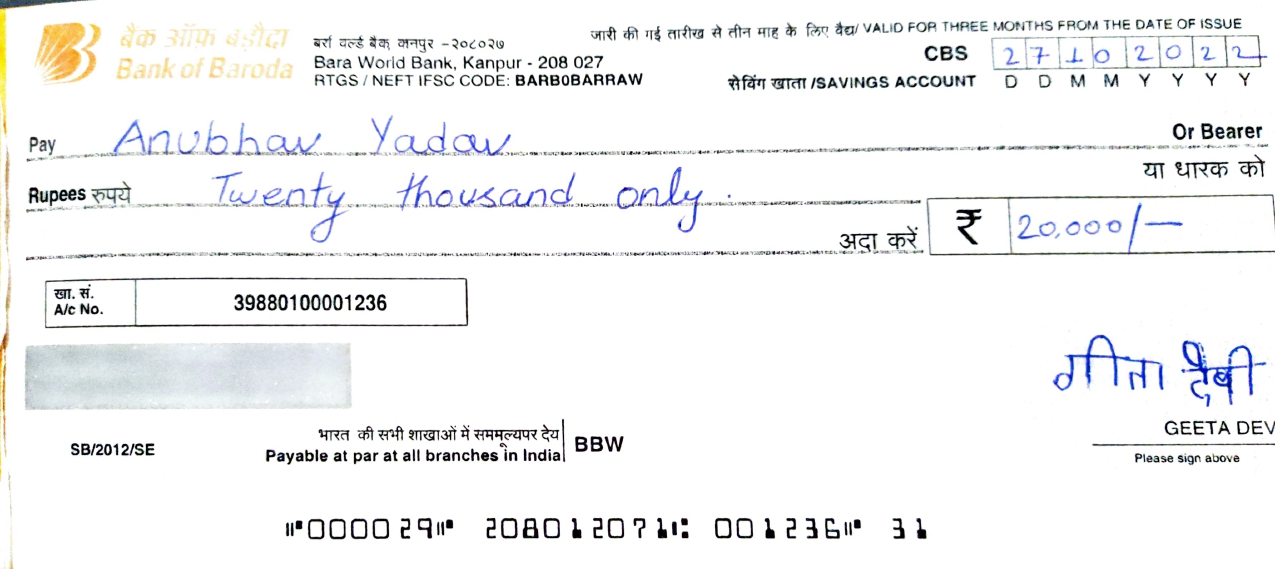 बैंक ऑफ़ बड़ौदा
Bank of Baroda
बर्रा वर्ल्ड बैंक कानपुर -२०८०२७
Bara World Bank, Kanpur - 208 027
RTGS / NEFT IFSC CODE: BARB0BARRAW
जारी की गई तारीख से तीन माह के लिए वैद्य/ VALID FOR THREE MONTHS FROM THE DATE OF ISSUE
CBS 2 7 1 0 2 0 2 2
सेविंग खाता /SAVINGS ACCOUNT D D M M Y Y Y Y
Pay Anubhav Yadav Or Bearer
या धारक को
Rupees रुपये Twenty thousand only.
अदा करें ₹ 20,000/-
खा. सं.
A/c No. 39880100001236
गीता देवी
GEETA DEV
Please sign above
SB/2012/SE
भारत की सभी शाखाओं में सममूल्यपर देय
Payable at par at all branches in India BBW
⑈000029⑈ 208012071⑆ 001236⑈ 31